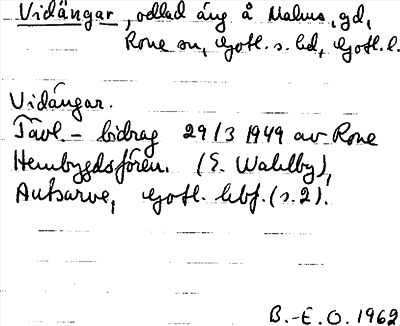 Vidängar, odlad äng å Malms, gd,
Rone sn, Gotl. s. hd, Gotl. l.
Vidängar.
Tävl.- bidrag 29/3 1949 av Rone
Hembygdsfören. (E. Wahlby),
Autsarve, Gotl. hbf. (s. 2).
B.-E. O. 1962